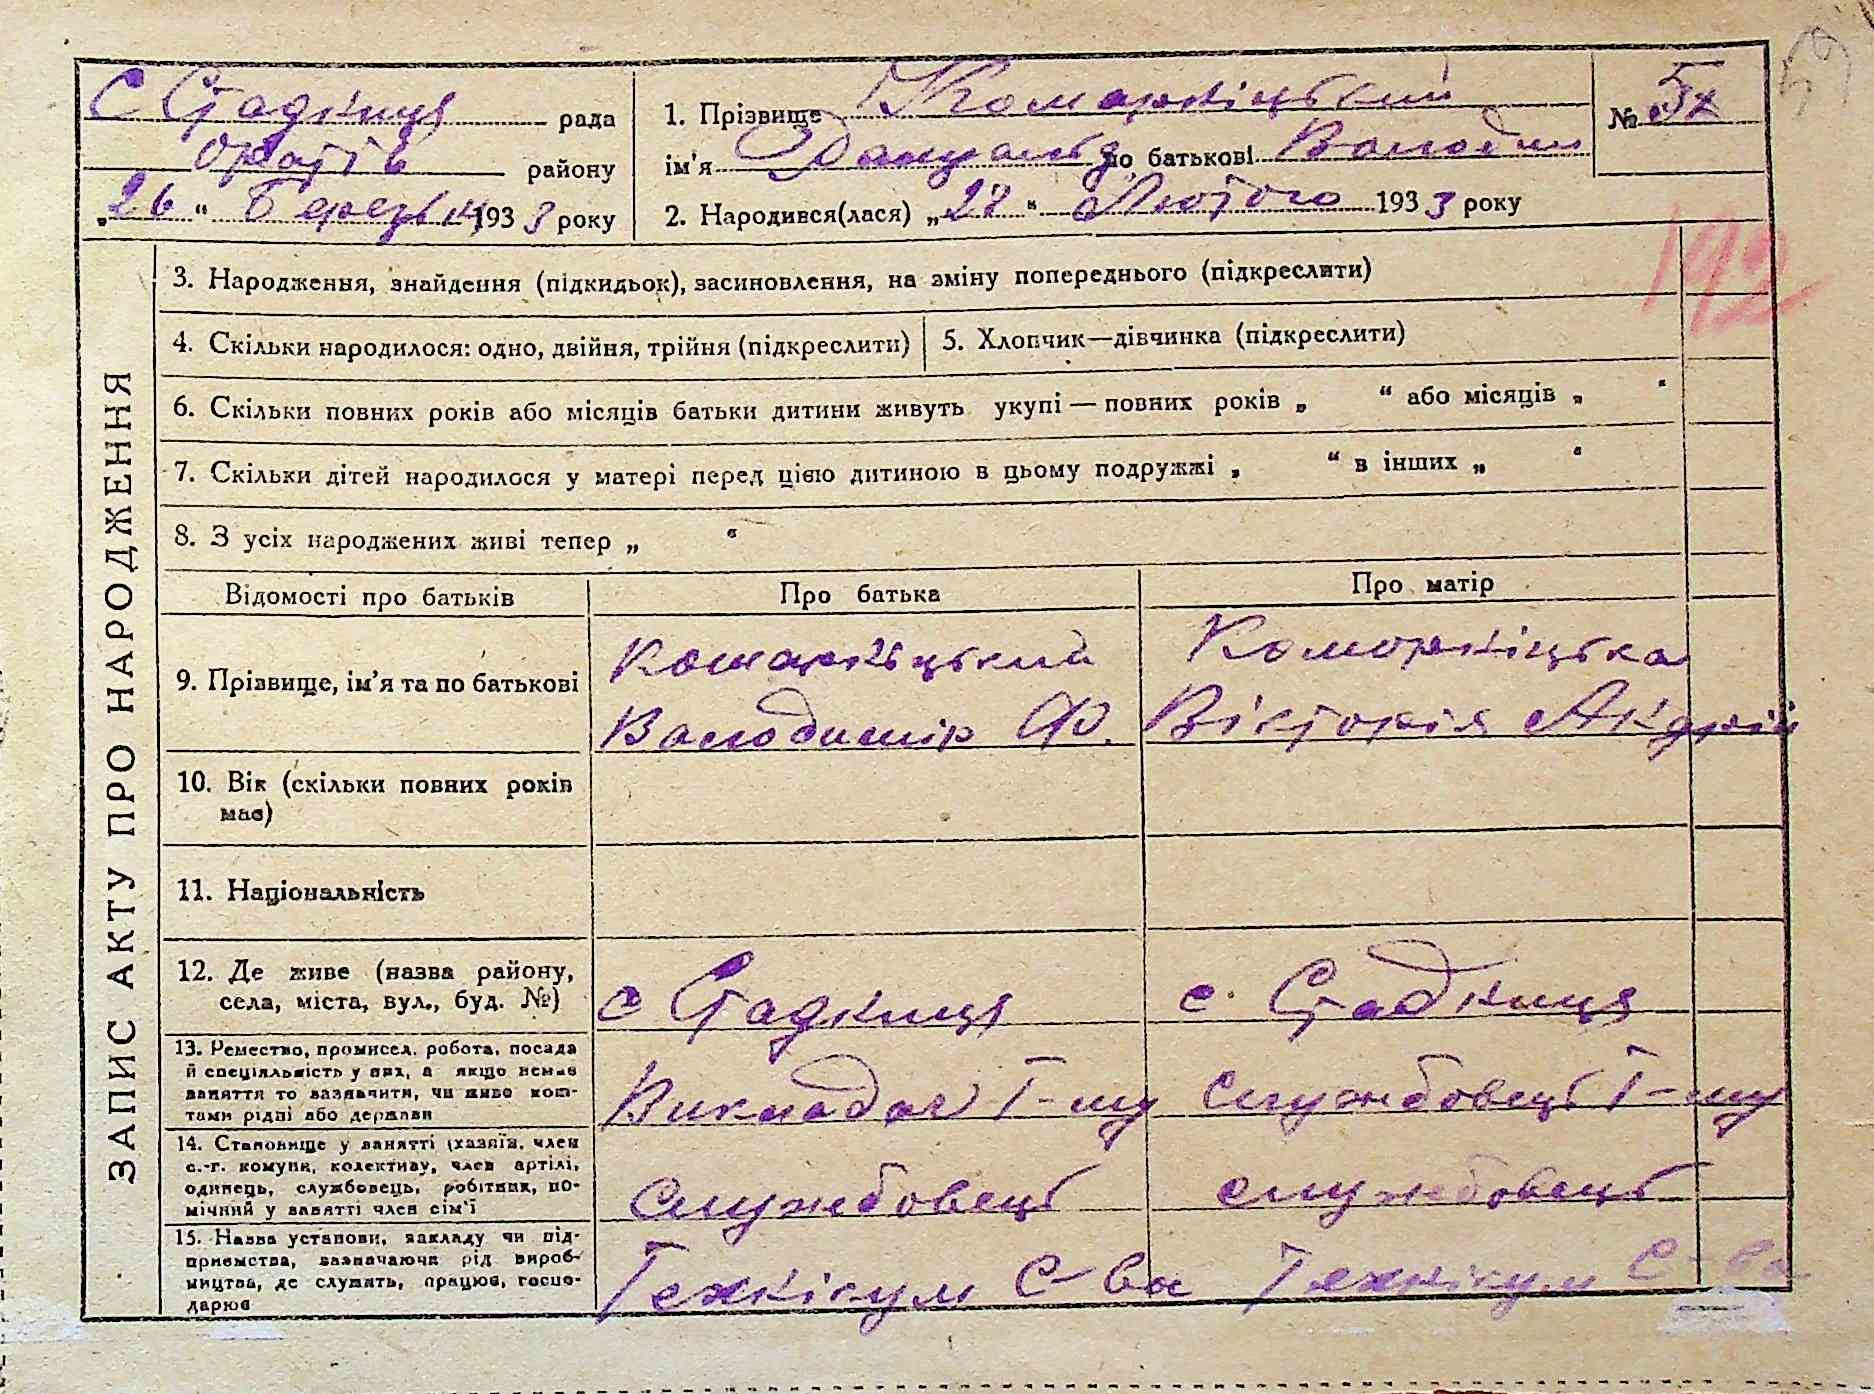 с Стадниця рада
Оратів району
„26“ Березня 1933 року
1. Прізвище Комарніцький
ім'я по батькові Володим
2. Народився(лася) „28“ Лютого 1933 року
№ 52
59
192
ЗАПИС АКТУ ПРО НАРОДЖЕННЯ
3. Народження, знайдення (підкидьок), засиновлення, на зміну попереднього (підкреслити)
4. Скільки народилося: одно, двійня, трійня (підкреслити)
5. Хлопчик—дівчинка (підкреслити)
6. Скільки повних років або місяців батьки дитини живуть укупі — повних років „ “ або місяців „ “
7. Скільки дітей народилося у матері перед цією дитиною в цьому подружжі „ “ в інших „ “
8. З усіх народжених живі тепер „ “
Відомості про батьків Про батька Про матір
9. Прізвище, ім'я та по батькові
Комарніцький
Володимір Ф.
Комарніцька
Вікторія Андрій
10. Вік (скільки повних років
має)
11. Національність
12. Де живе (назва району,
села, міста, вул., буд. №)
с Стадниця
с. Стадниця
13. Ремество, промисел, робота, посада
й спеціяльність у них, а якщо немає
заняття то зазначити, чи живе кош-
тами рідні або держави
Викладач Т-му
службовець Т-му
14. Становище у занятті (хазяїн, член
с.-г. комуни, колективу, член артілі,
одинець, службовець, робітник, по-
мічний у занятті член сім'ї
службовець
службовець
15. Назва установи, закладу чи під-
приємства, зазначаючи рід вироб-
ництва, де служить, працює, госпо-
дарює
Технікум С-ва
Технікум С-ва